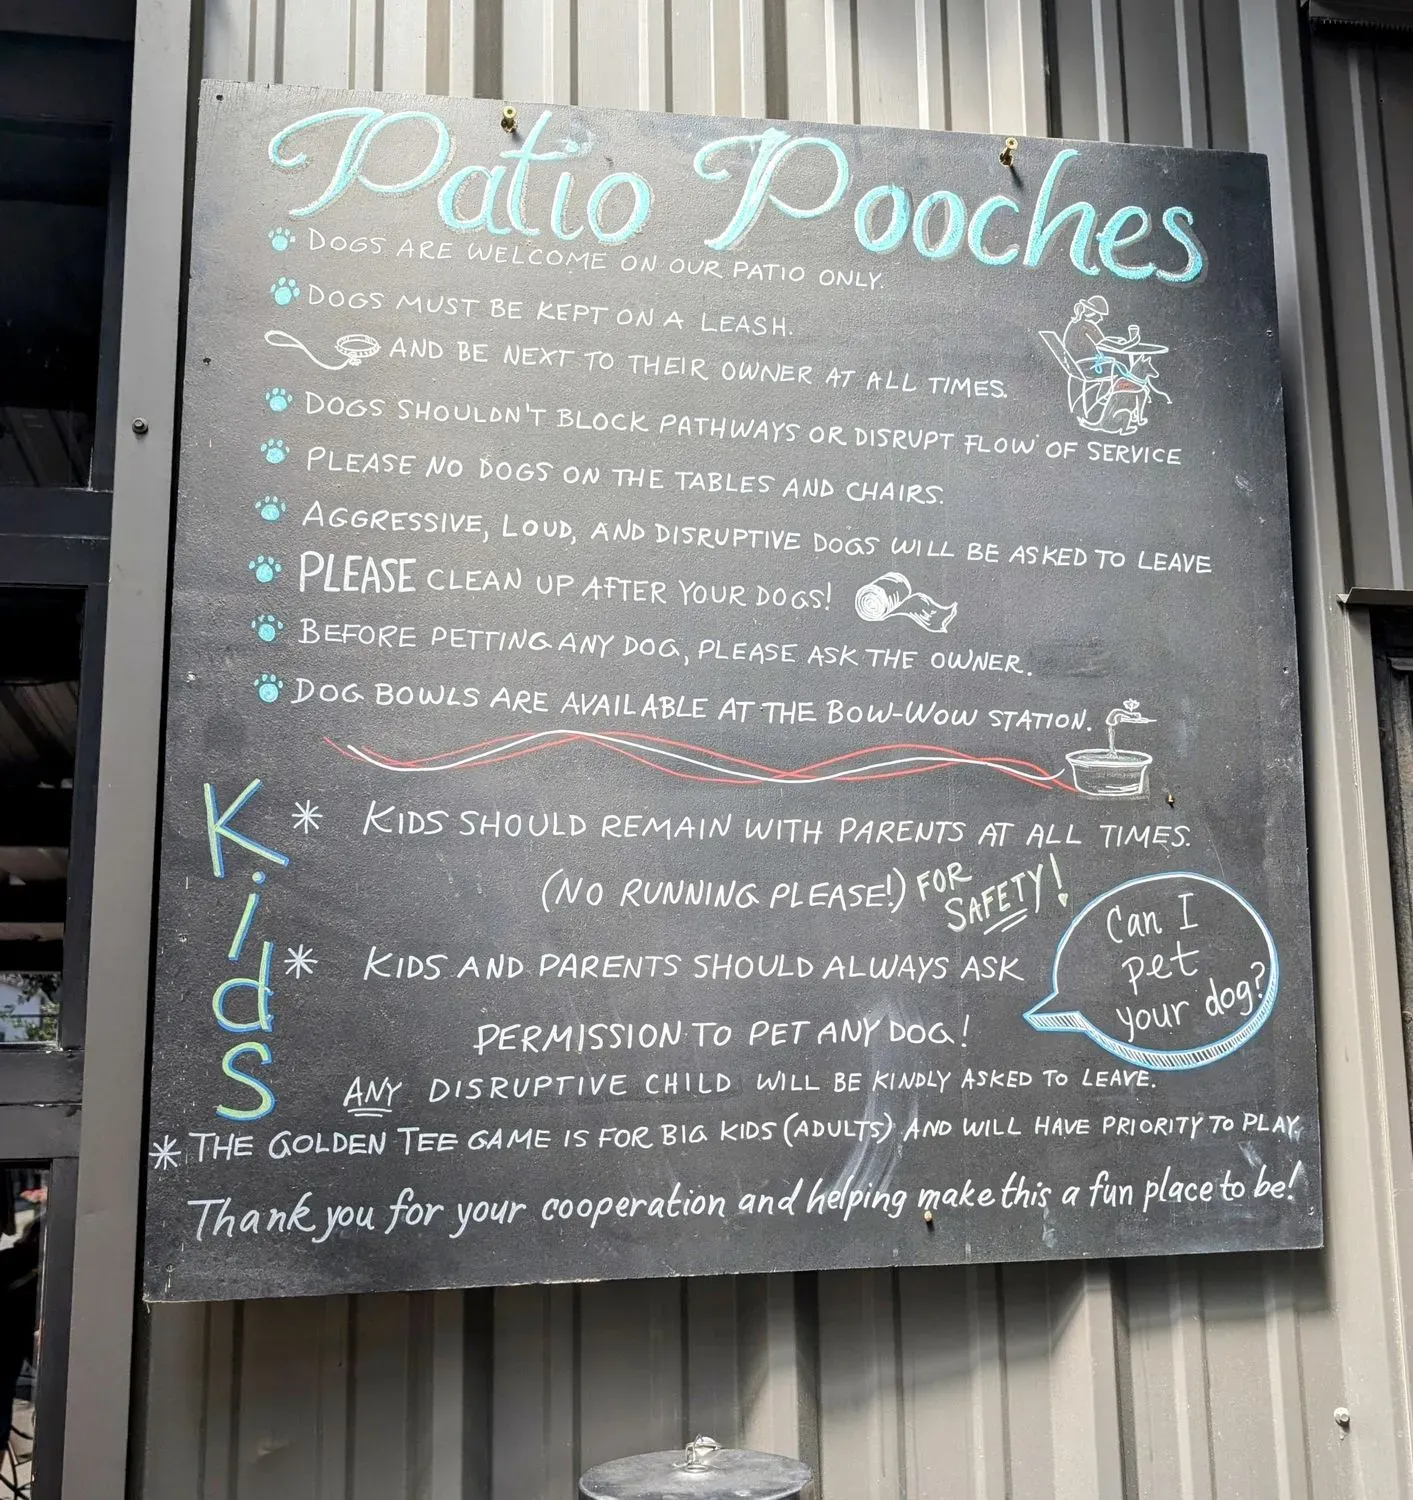 Patio Pooches
DOGS ARE WELCOME ON OUR PATIO ONLY.
DOGS MUST BE KEPT ON A LEASH.
AND BE NEXT TO THEIR OWNER AT ALL TIMES.
DOGS SHOULDN'T BLOCK PATHWAYS OR DISRUPT FLOW OF SERVICE
PLEASE NO DOGS ON THE TABLES AND CHAIRS.
AGGRESSIVE, LOUD, AND DISRUPTIVE DOGS WILL BE ASKED TO LEAVE
PLEASE CLEAN UP AFTER YOUR DOGS!
BEFORE PETTING ANY DOG, PLEASE ASK THE OWNER.
DOG BOWLS ARE AVAILABLE AT THE BOW-WOW STATION.
Kids
* KIDS SHOULD REMAIN WITH PARENTS AT ALL TIMES.
(NO RUNNING PLEASE!) FOR
SAFETY!
* KIDS AND PARENTS SHOULD ALWAYS ASK
PERMISSION TO PET ANY DOG!
Can I
pet
your dog?
ANY DISRUPTIVE CHILD WILL BE KINDLY ASKED TO LEAVE.
* THE GOLDEN TEE GAME IS FOR BIG KIDS (ADULTS) AND WILL HAVE PRIORITY TO PLAY.
Thank you for your cooperation and helping make this a fun place to be!